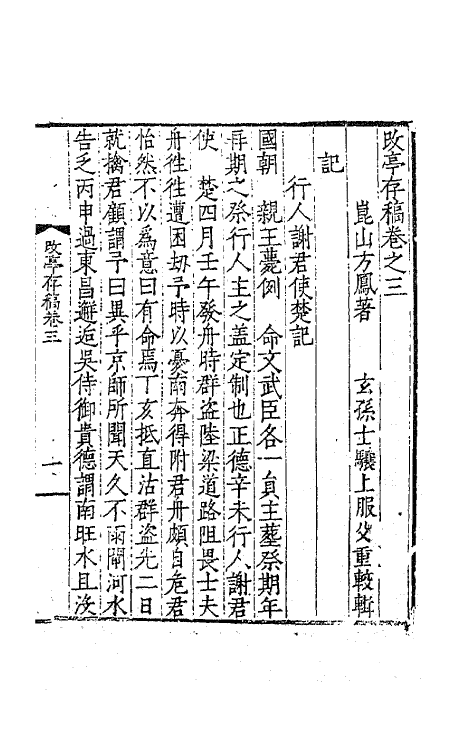 改亭存稿卷之三
崑山方鳳著　玄孫士驤上服父重較輯
記
行人謝君使楚記
國朝　親王薨例　命文武臣各一員主葬祭期年
再期之祭行人主之蓋定制也正德辛未行人謝君
使　楚四月壬午發舟時群盜陸梁道路阻畏士夫
舟徃徃遭困劫予時以憂南奔得附君舟頗自危君
怡然不以爲意曰有命焉丁亥抵直沽群盜先二日
就擒君顧謂予曰異乎京師所聞天久不雨閘河水
告乏丙申過東昌邂逅吳侍御貴德謂南旺水且涸
改亭存稿卷三
一